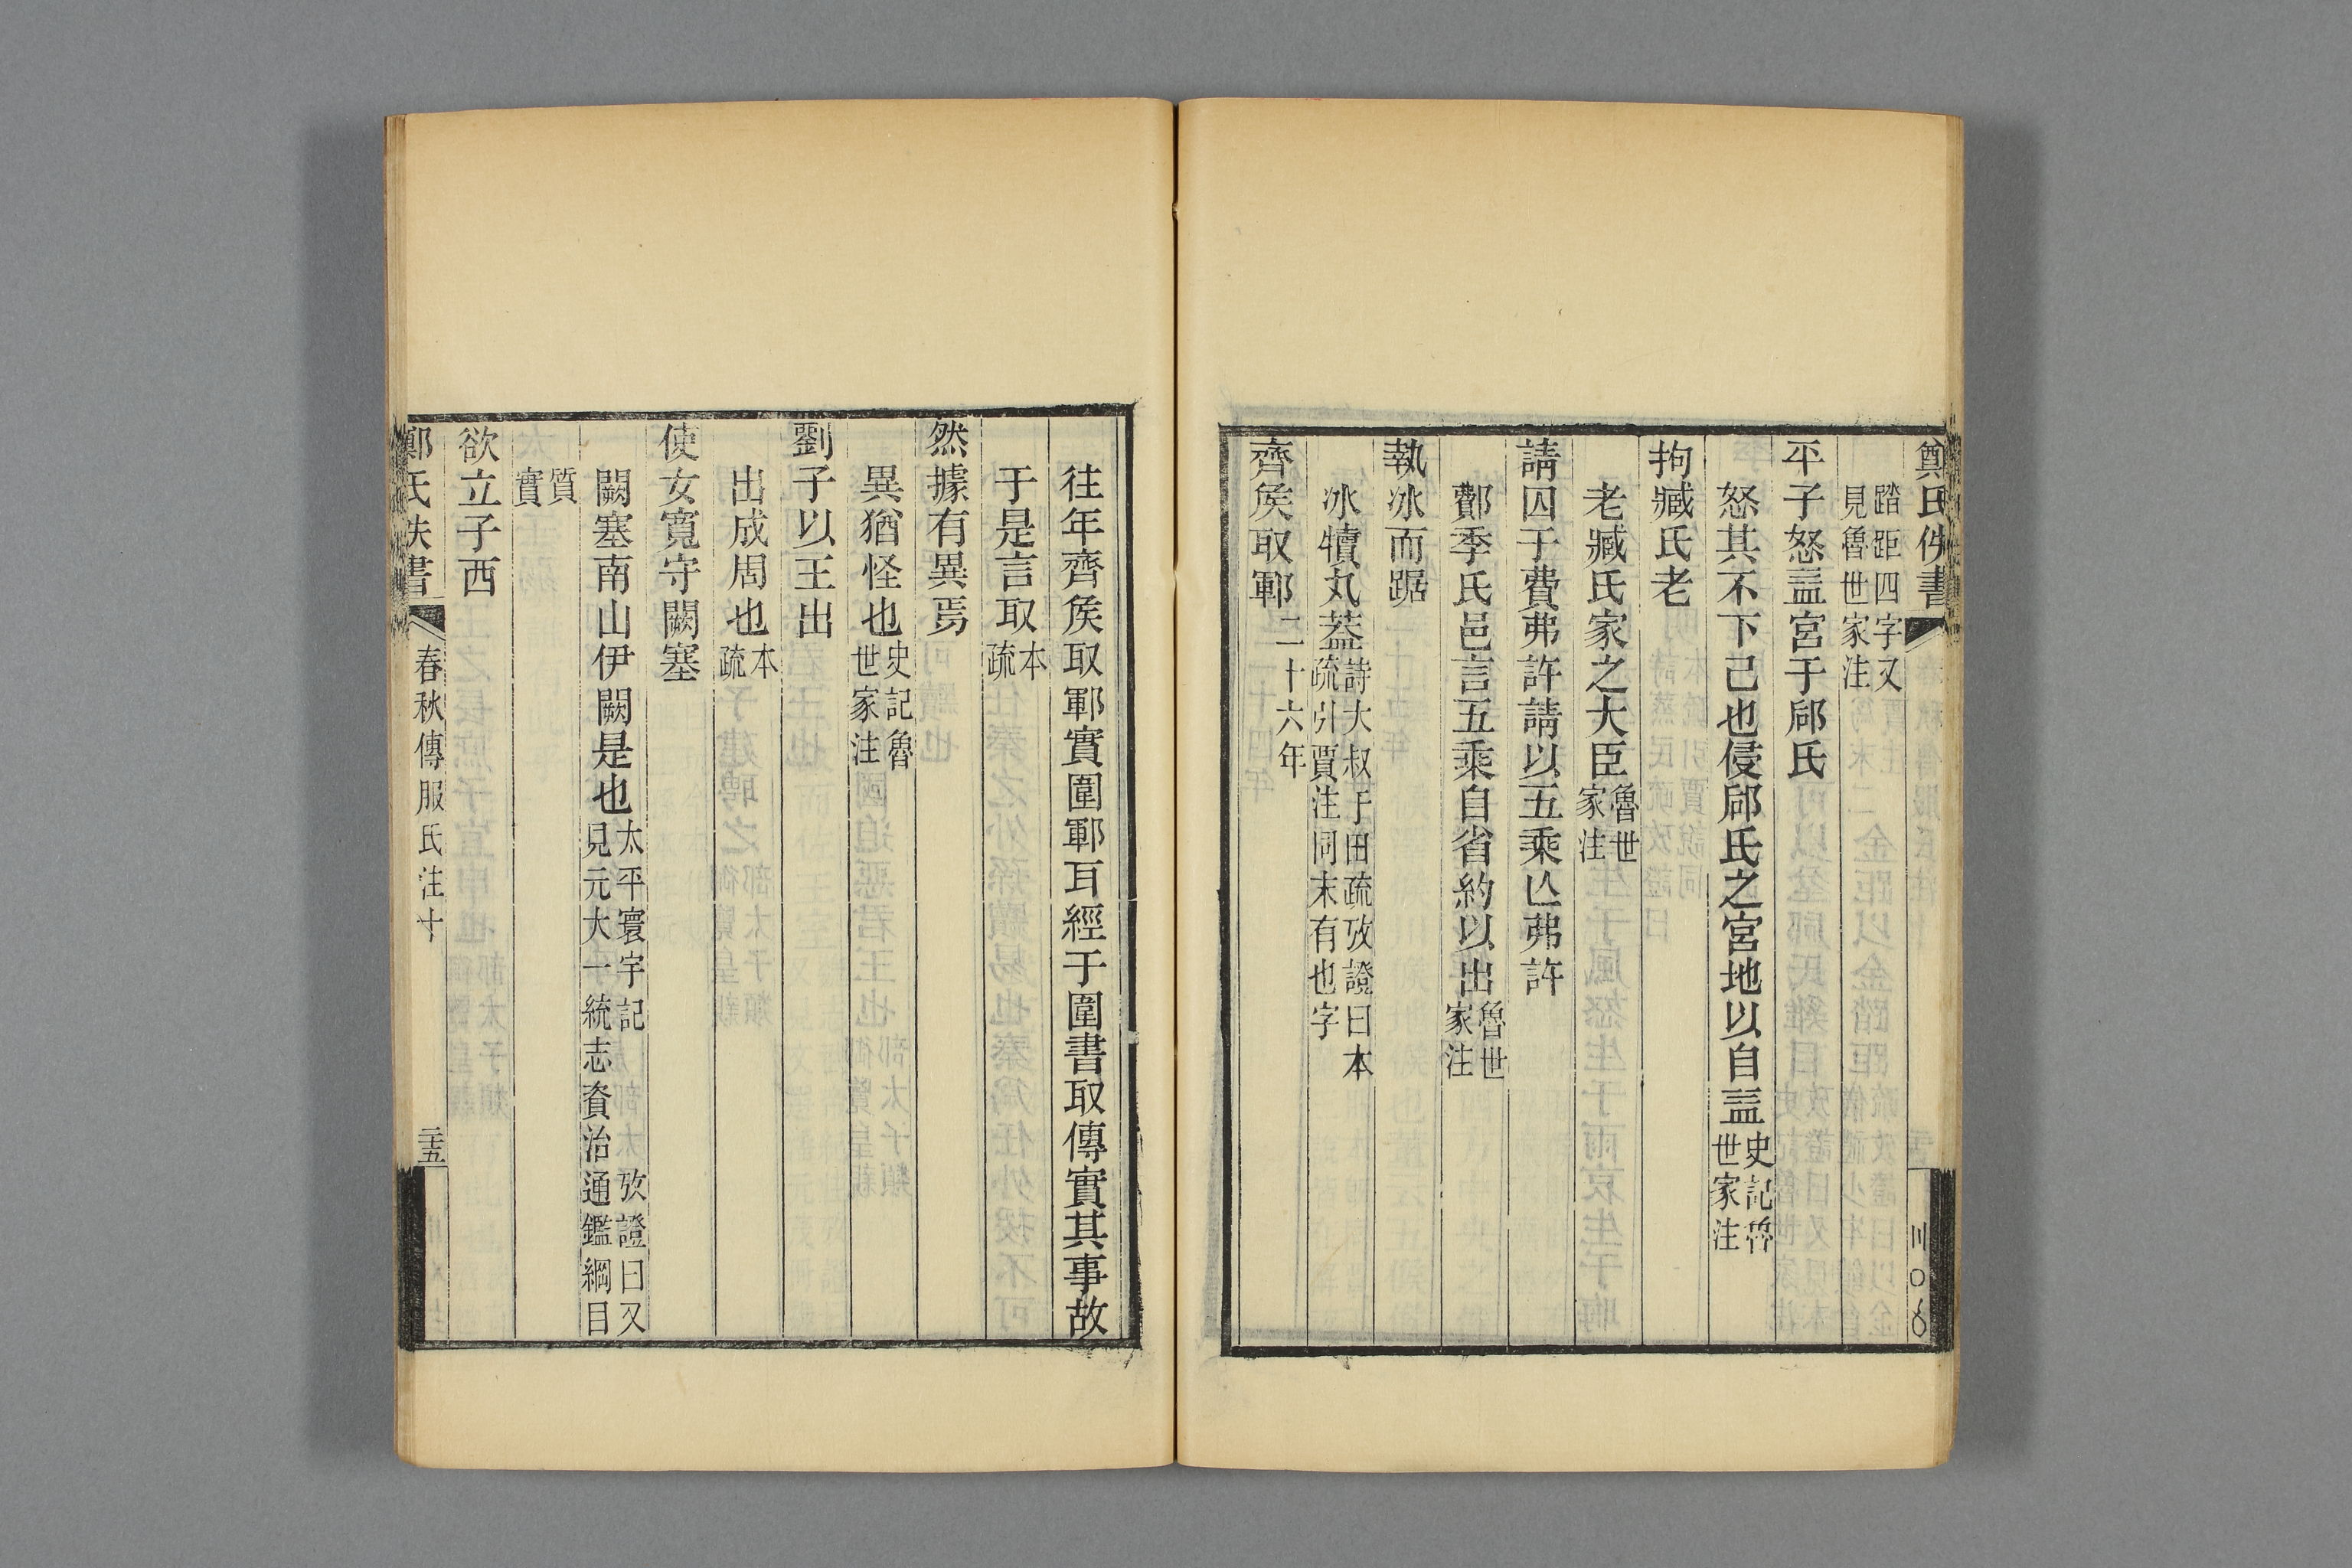 鄭氏佚書
踏距四字又
見魯世家注
平子怒益宮于郈氏
怒其不下己也侵郈氏之宮地以自益史記魯
世家注
拘臧氏老
老臧氏家之大臣魯世
家注
請囚于費弗許請以五乘亾弗許
鄪季氏邑言五乘自省約以出魯世
家注
執冰而踞
冰犢丸蓋詩大叔于田疏攷證曰本
疏引賈注同末有也字
齊矦取鄆二十六年
往年齊矦取鄆實圍鄆耳經于圍書取傳實其事故
于是言取本
疏
然據有異焉
異猶怪也史記魯
世家注
劉子以王出
出成周也本
疏
使女寬守闕塞
闕塞南山伊闕是也太平寰宇記 攷證曰又
見元大一統志資治通鑑綱目
質
實
欲立子西
鄭氏佚書
春秋傳服氏注十
三五